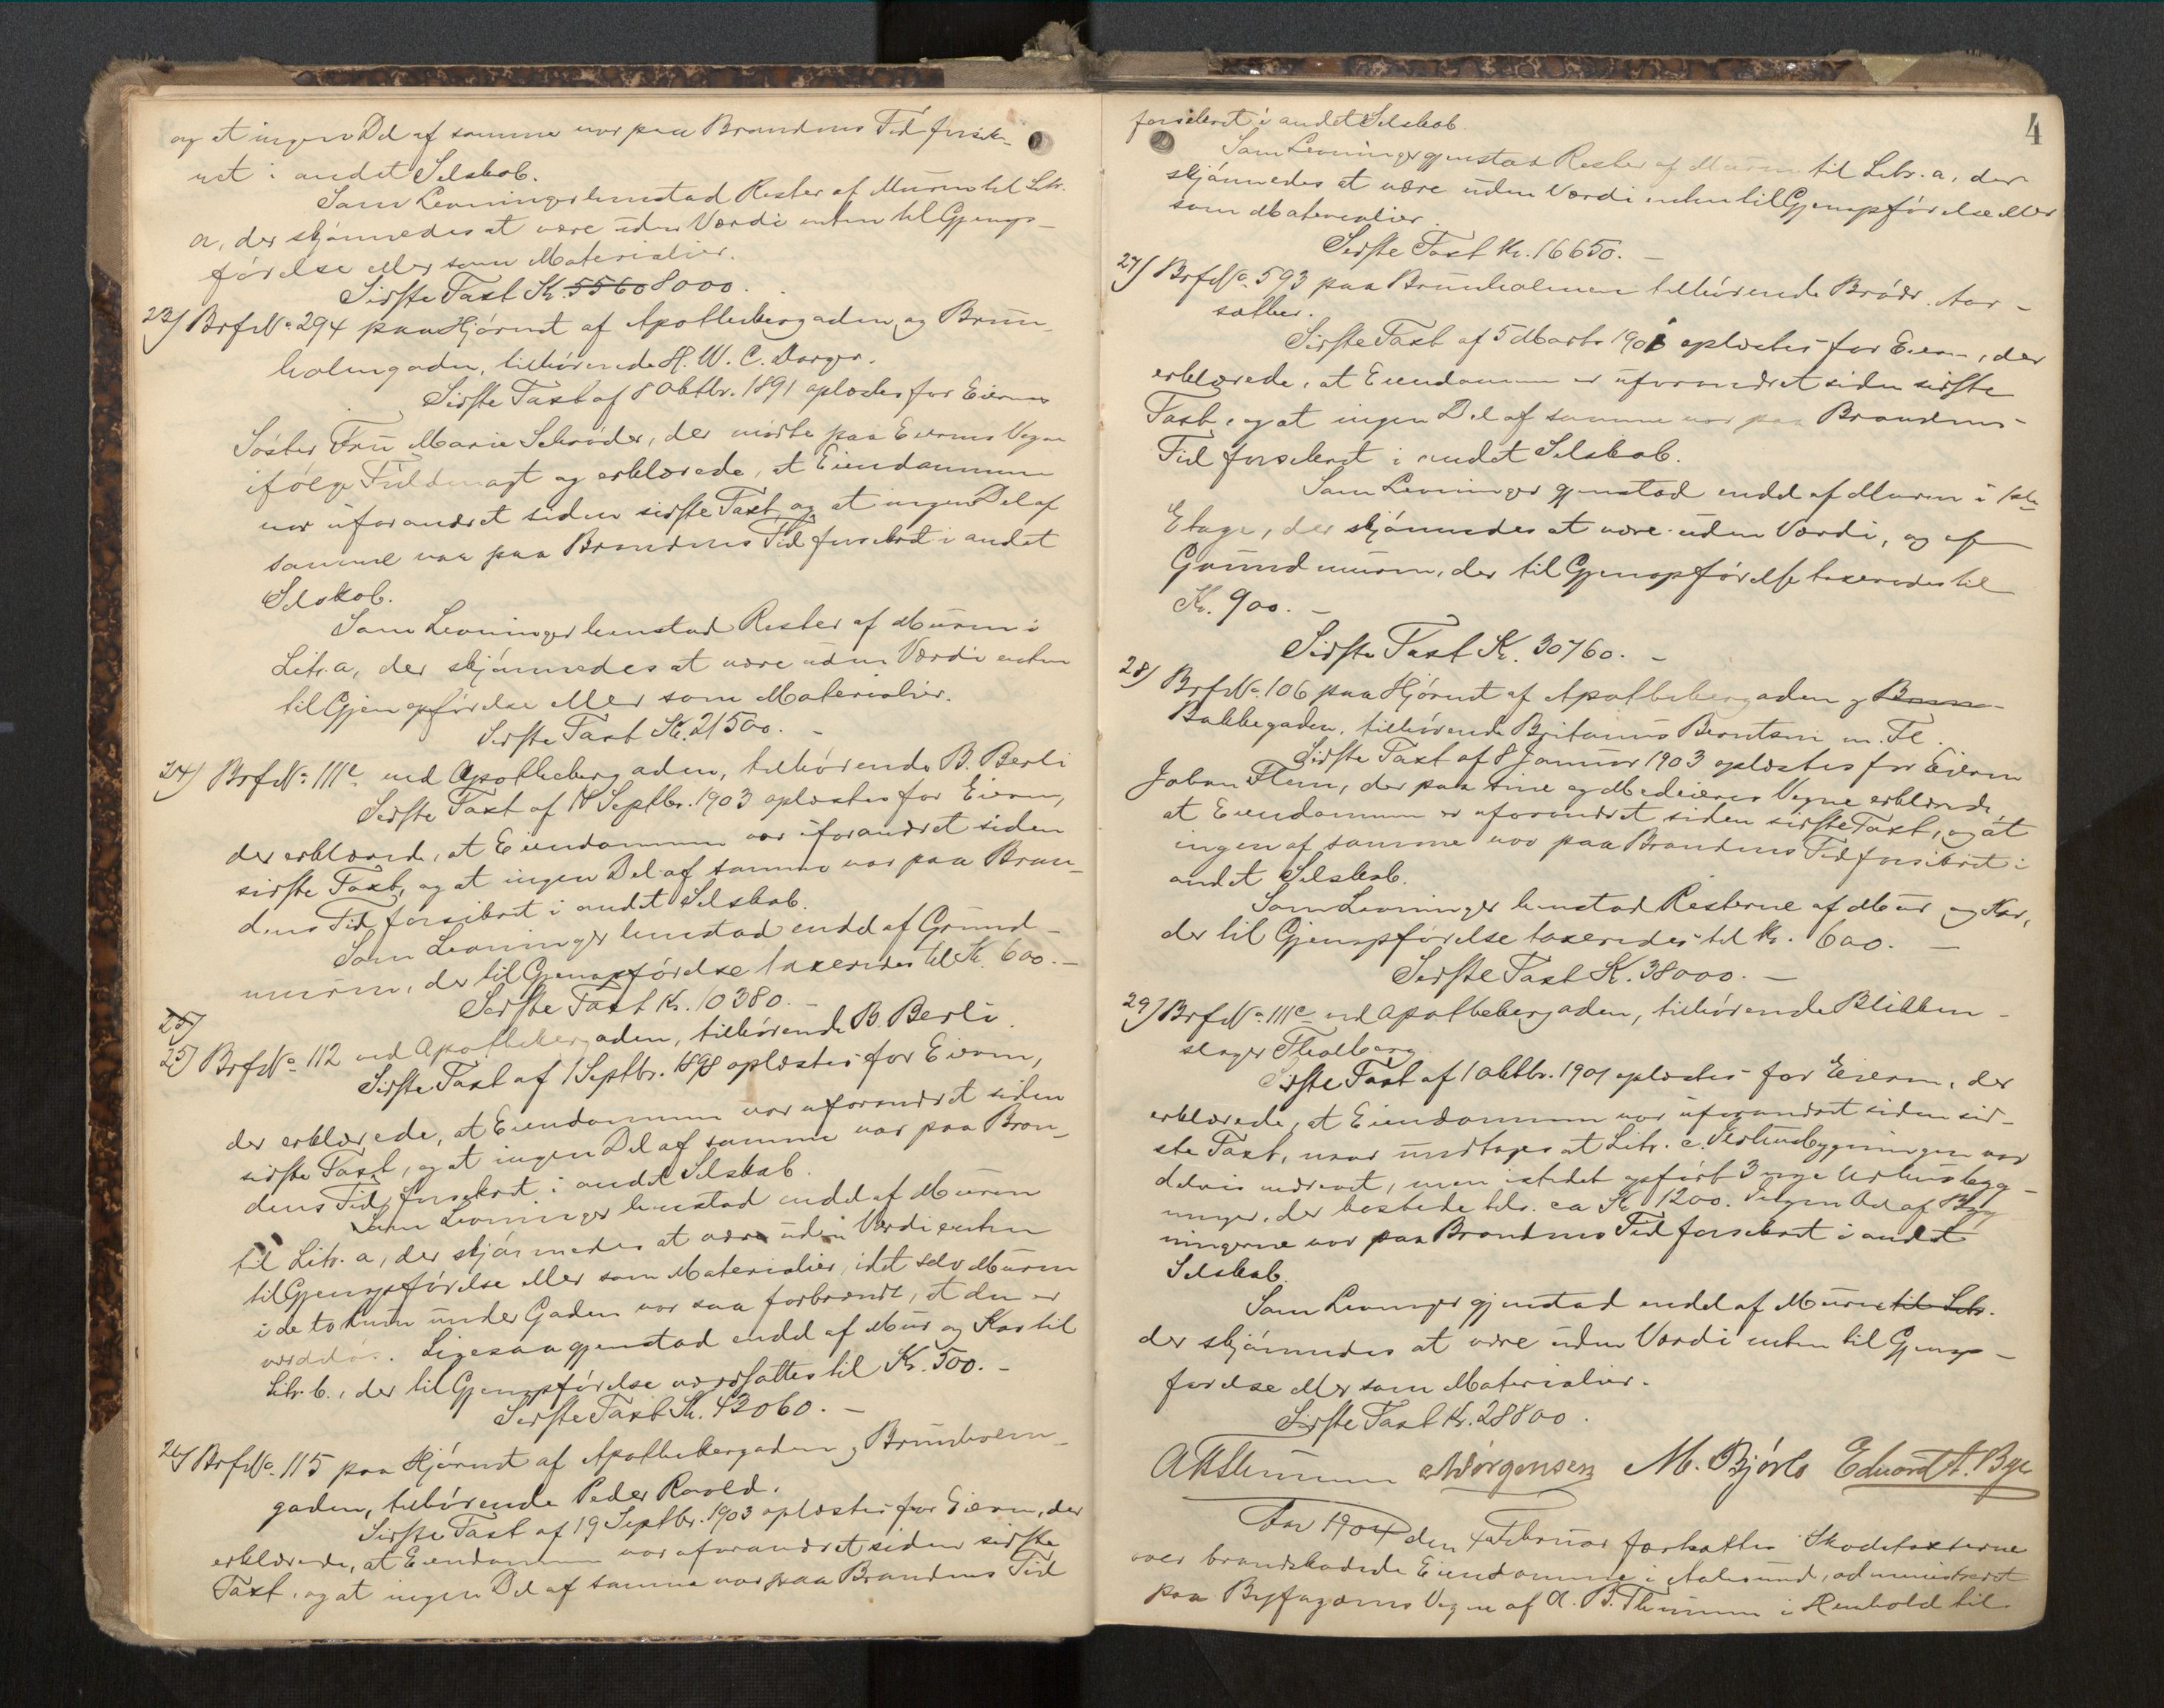 og at ingen Del af samme var paa Brandens Tid forsik-
ret i andet Selskab.
Som Levninger henstod Rester af Muren til Litr.
a, der skjønnedes at være uden Værdi enten til Gjenop-
førelse eller som Materialier.
Sidste Taxt Kr. 5560 8000.
23) Brf. No. 294 paa Hjørnet af Apothekergaden og Brun-
holmgaden, tilhørende H. W. C. Dorger.
Sidste Taxt af 8 Oktbr. 1891 oplæstes for Eierens
Søster Fru Marie Schrøder, der mødte paa Eierens Vegne
ifølge Fuldmagt og erklærede, at Eiendommen
var uforandret siden sidste Taxt, og at ingen Del af
samme var paa Brandens Tid forsikret i andet
Selskab.
Som Levninger henstod Rester af Muren i
Litr. a, der skjønnedes at være uden Værdi enten
til Gjenopførelse eller som Materialier.
Sidste Taxt Kr. 21500. -
24) Brf. No. 111e ved Apothekergaden, tilhørende B. Berli
Sidste Taxt af Septbr. 1903 oplæstes for Eieren,
der erklærede, at Eiendommen var uforandret siden
sidste Taxt, og at ingen Del af samme var paa Bran-
dens Tid forsikret i andet Selskab.
Som Levninger henstod endel af Grund-
muren, der til Gjenopførelse taxeredes til Kr. 600. -
Sidste Taxt Kr. 10380. -
25)
25) Brf. No. 112 ved Apothekergaden, tilhørende B. Berli.
Sidste Taxt af 1 Septbr. 1898 oplæstes for Eieren,
der erklærede, at Eiendommen var uforandret siden
sidste Taxt, og at ingen Del af samme var paa Bran-
dens Tid forsikret i andet Selskab.
Som Levninger henstod endel af Muren
til Litr. a, der skjønnedes at være uden Værdi enten
til Gjenopførelse eller som Materialier, idet selv Muren
i de to Rum under Gaden var saa forbrændt, at den er
værdiløs. Ligesaa gjenstod endel af Mur og Kar til
Litr. b., der til Gjenopførelse værdsattes til Kr. 500. -
Sidste Taxt Kr. 43060. -
26) Brf. No. 115 paa Hjørnet af Apothekergaden og Brunholm-
gaden, tilhørende Peder Ravold.
Sidste Taxt af 19 Septbr. 1903 oplæstes for Eieren, der
erklærede, at Eiendommen var uforandret siden sidste
Taxt, og at ingen Del af samme var paa Brandens Tid
4
forsikret i andet Selskab.
Som Levninger gjenstod Rester af Muren til Litr. a, der
skjønnedes at være uden Værdi enten til Gjenopførelse eller
som Materialier.
Sidste Taxt Kr. 16650. -
27) Brf. No. 593 paa Brunholmen tilhørende Brødr. Aar-
sæther.
Sidste Taxt af 5 Marts 1901 oplæstes for Eieren, der
erklærede, at Eiendommen er uforandret siden sidste
Taxt, og at ingen Del af samme var paa Brandens
Tid forsikret i andet Selskab.
Som Levninger gjenstod endel af Muren i 1ste
Etage, der skjønnedes at være uden Værdi, og af
Grundmuren, der til Gjenopførelse taxeredes til
Kr. 900. -
Sidste Taxt Kr. 30760. -
28) Brf. No. 106 paa Hjørnet af Apothekergaden og Brun-
Bakkegaden, tilhørende Britanus Berntsen m. Fl.
Sidste Taxt af 8 Januar 1903 oplæstes for Eieren
Johan Flem, der paa sine og Medeieres Vegne erklærede,
at Eiendommen er uforandret siden sidste Taxt, og at
ingen af samme var paa Brandens Tid forsikret i
andet Selskab.
Som Levninger henstod Resterne af Mur og Kar,
der til Gjenopførelse taxeredes til Kr. 600. -
Sidste Taxt Kr. 38000. -
29) Brf. No. 111c ved Apothekergaden, tilhørende Blikken-
slager Tholberg.
Sidste Taxt af 1 Oktbr. 1901 oplæstes for Eieren, der
erklærede, at Eiendommen var uforandret siden sid-
ste Taxt, naar undtages at Litr. c. Udhusbygningen var
delvis nedrevet, men istedet opført 3 nye Udhusbyg-
ninger, der kostede tils. ca Kr. 1200. Ingen Del af Byg-
ningerne var paa Brandens Tid forsikret i andet
Selskab.
Som Levninger gjenstod endel af Muren til Litr.
der skjønnedes at være uden Værdi enten til Gjenop-
førelse eller som Materialier.
Sidste Taxt Kr. 28800.
Jørgensen M. Bjørlo Edvard A. Bye
Aar 1904 den 4 Februar fortsattes Skadetaxterne
over brandskadede Eiendomme i Aalesund, administreret
paa Byfogdens Vegne af i Henhold til